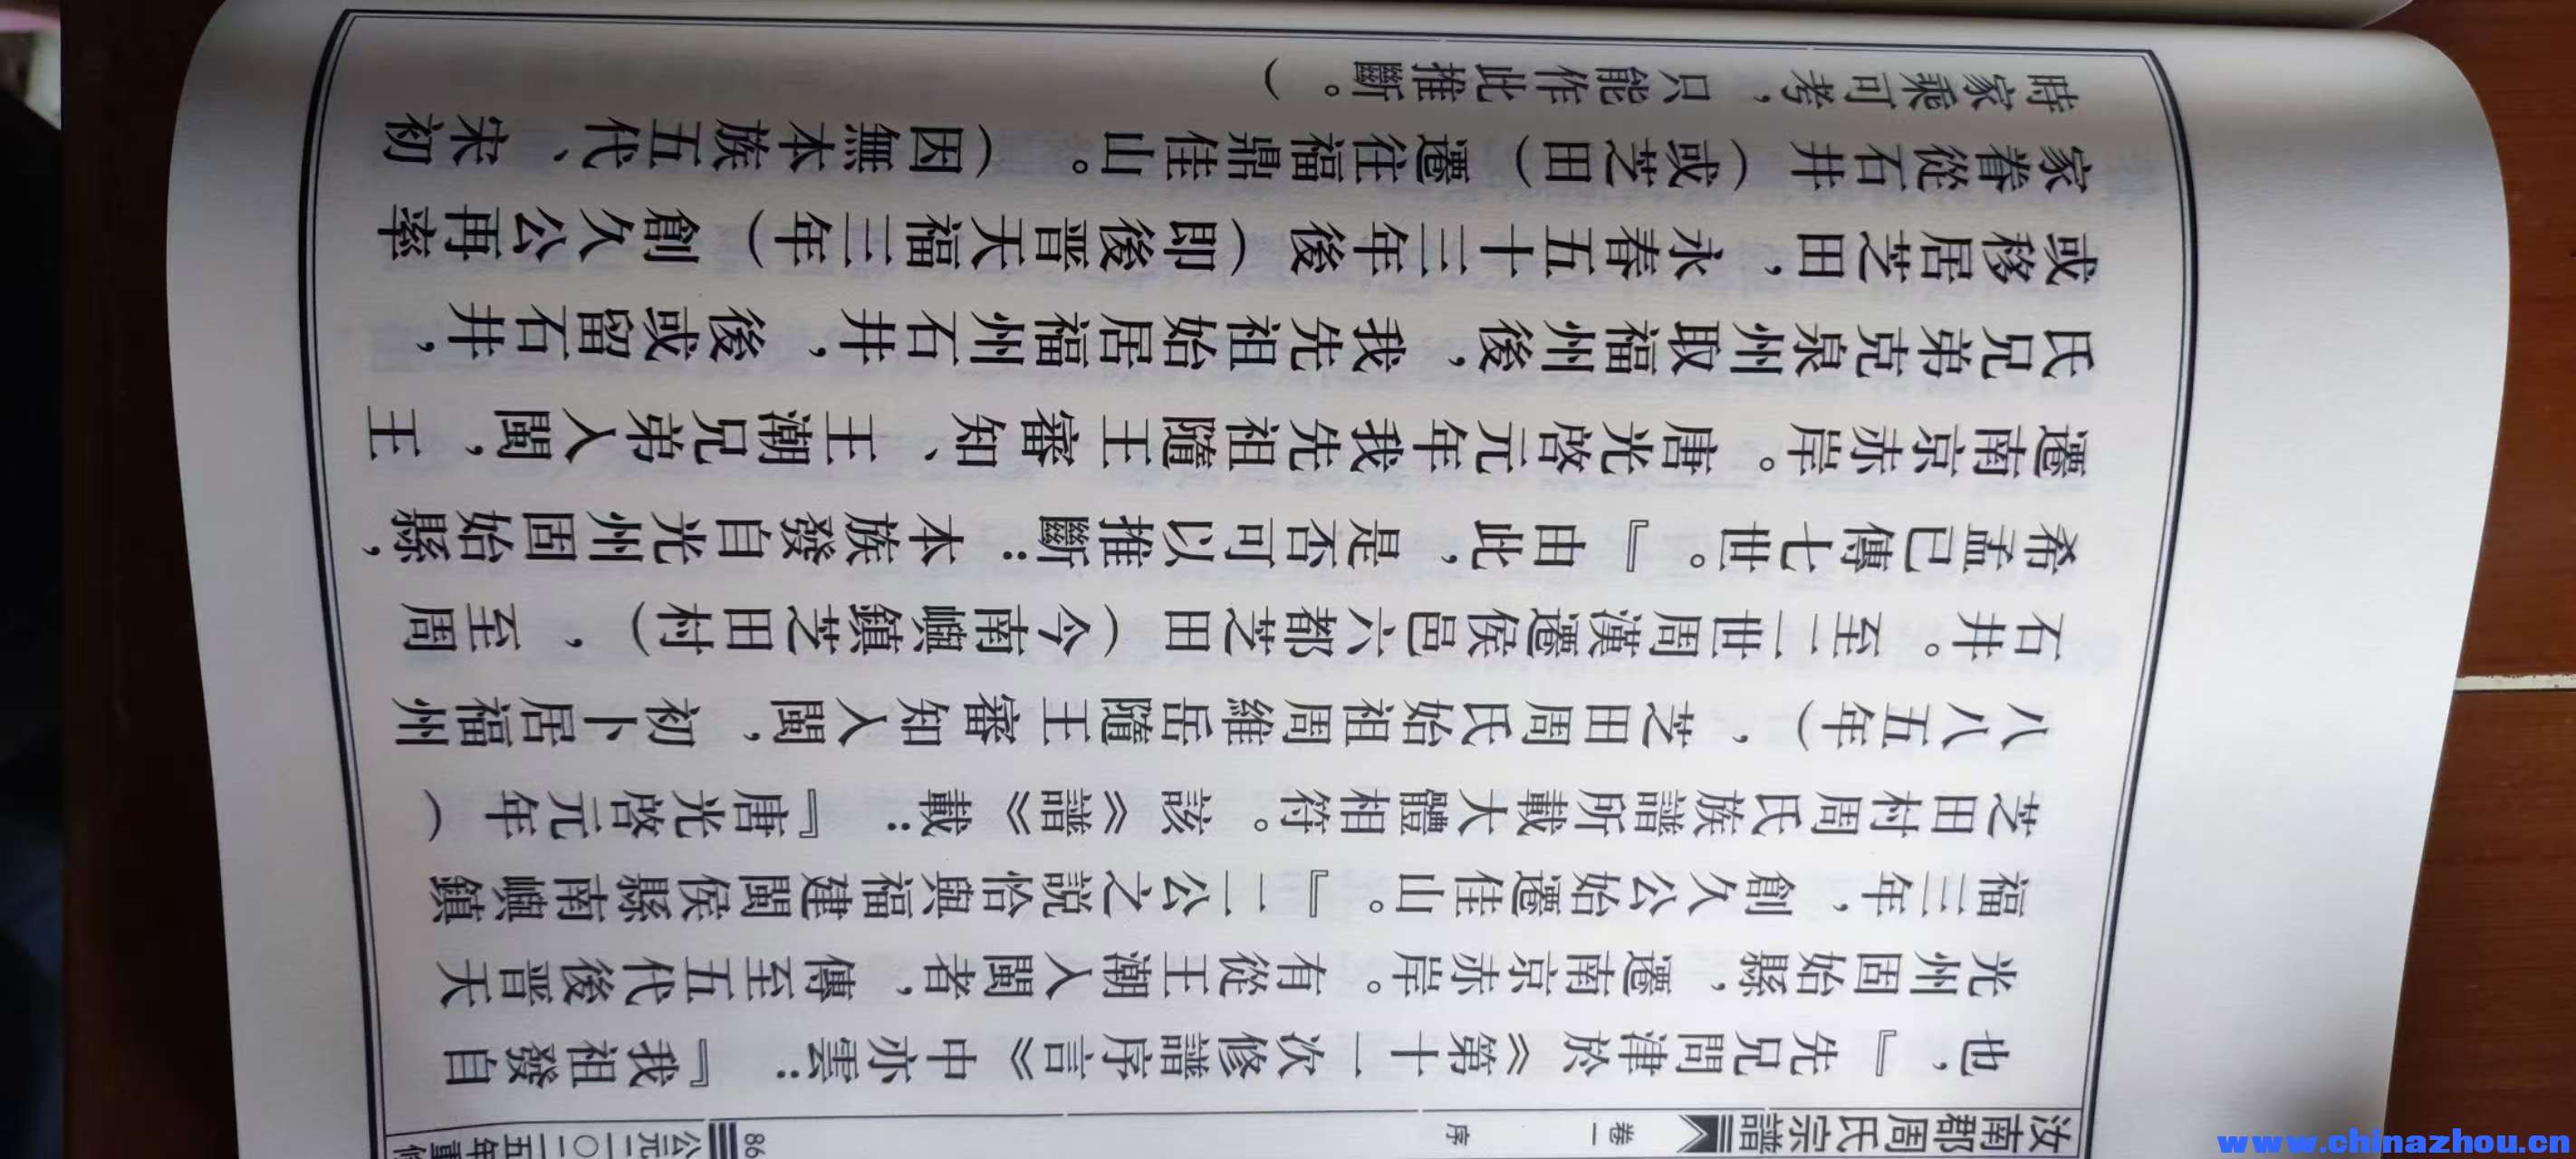 汝南郡周氏宗譜 卷一 序 98 公元二〇一五年重修
也，』先兄問津於《第十一次修譜序言》中亦雲：『我祖發自
光州固始縣，遷南京赤岸。有從王潮入閩者，傳至五代後晉天
福三年，創久公始遷佳山。』二公之說恰與福建閩侯縣南嶼鎮
芝田村周氏族譜所載大體相符。該《譜》載：『唐光啓元年（
八八五年），芝田周氏始祖周維岳隨王審知入閩，初卜居福州
石井。至二世周漢遷侯邑六都芝田（今南嶼鎮芝田村），至周
希孟已傳七世。』由此，是否可以推斷：本族發自光州固始縣，
遷南京赤岸。唐光啓元年我先祖隨王審知、王潮兄弟入閩，王
氏兄弟克泉州取福州後，我先祖始居福州石井，後或留石井，
或移居芝田，永春五十三年後（即後晉天福三年）創久公再率
家眷從石井（或芝田）遷往福鼎佳山。（因無本族五代、宋初
時家乘可考，只能作此推斷。）
www.chinazhou.cn